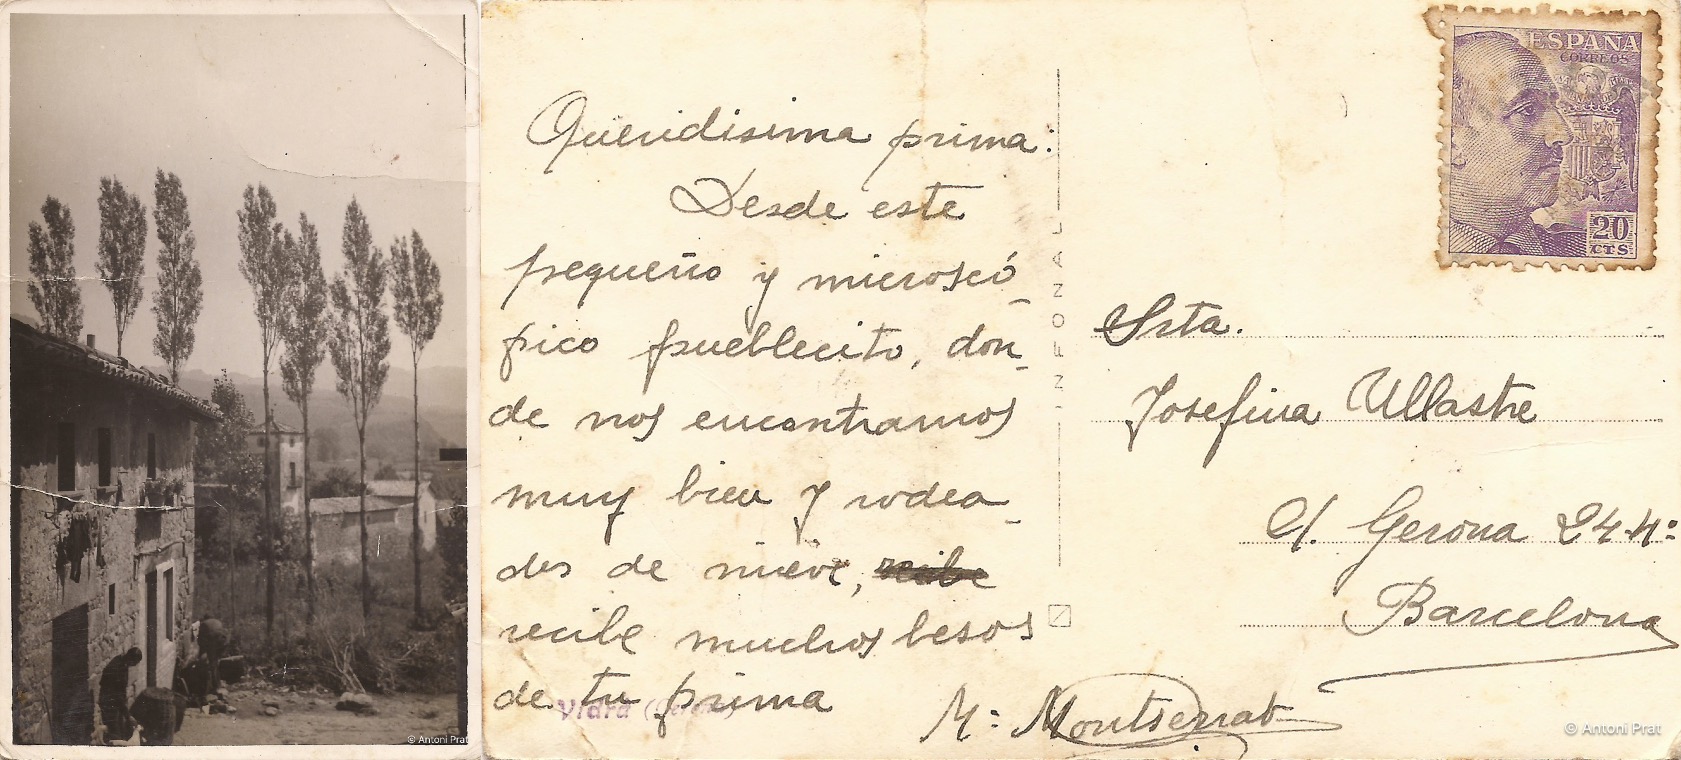 © Antoni Prat
Queridisima prima:
Desde este
pequeño y microscó-
pico pueblecito, don-
de nos encontramos
muy bien y rodea-
des de nieve, recibe
recibe muchos besos
de tu prima
Mª Montserrat
Vidrà
INFONAL
ESPAÑA
CORREOS
20
CTS
Srta.
Josefina Ullastre
C/. Gerona 24-4º
Barcelona
© Antoni Prat